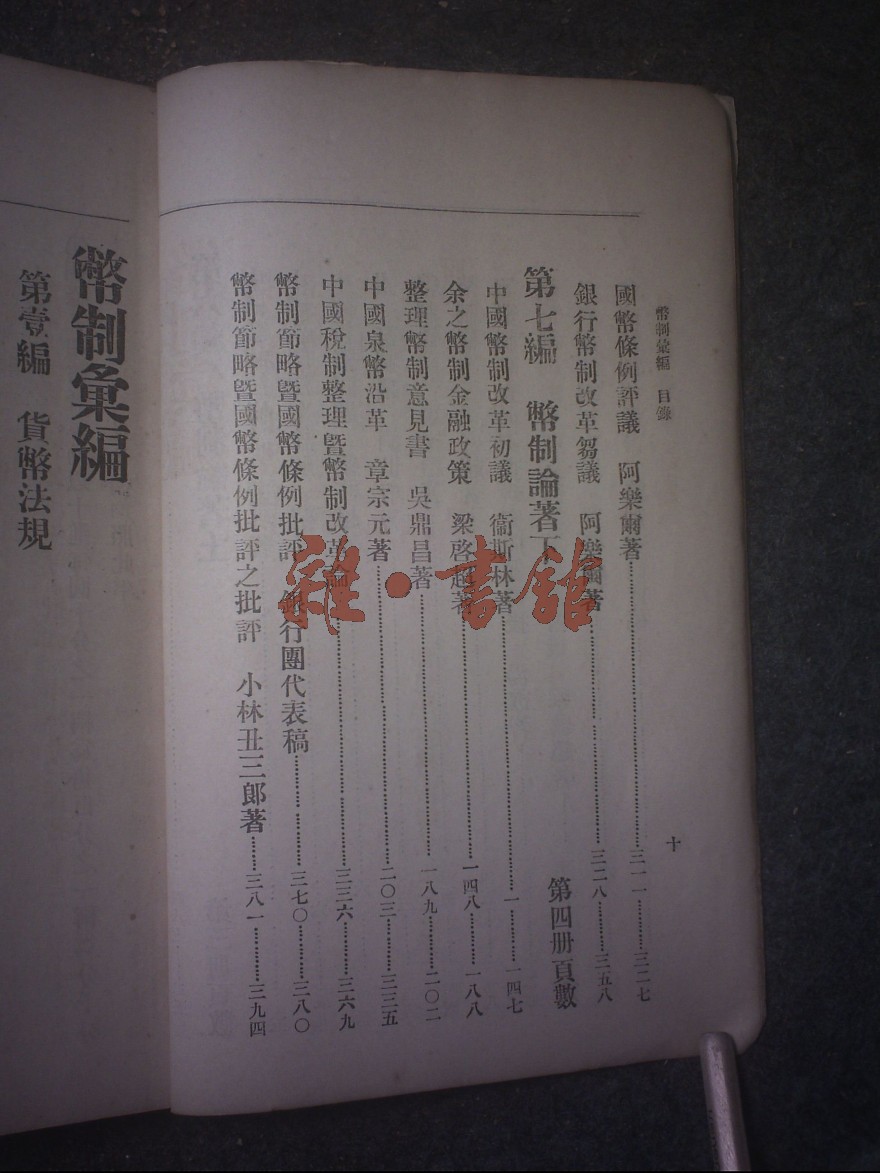 幣制彙編 目錄
十
國幣條例評議 阿樂爾著……三一一……三二七
銀行幣制改革芻議 阿樂爾著……三二八……三五八
第七編 幣制論著下 第四册頁數
中國幣制改革初議 衞斯林著……一……一四七
余之幣制金融政策 梁啓超著……一四八……一八八
整理幣制意見書 吳鼎昌著……一八九……二〇二
中國泉幣沿革 章宗元著……二〇三……三三五
中國稅制整理暨幣制改革論……三三六……三六九
幣制節略暨國幣條例批評 銀行團代表稿……三七〇……三八〇
幣制節略暨國幣條例批評之批評 小林丑三郎著……三八一……三九四
幣制彙編
第壹編 貨幣法規
雜·書館